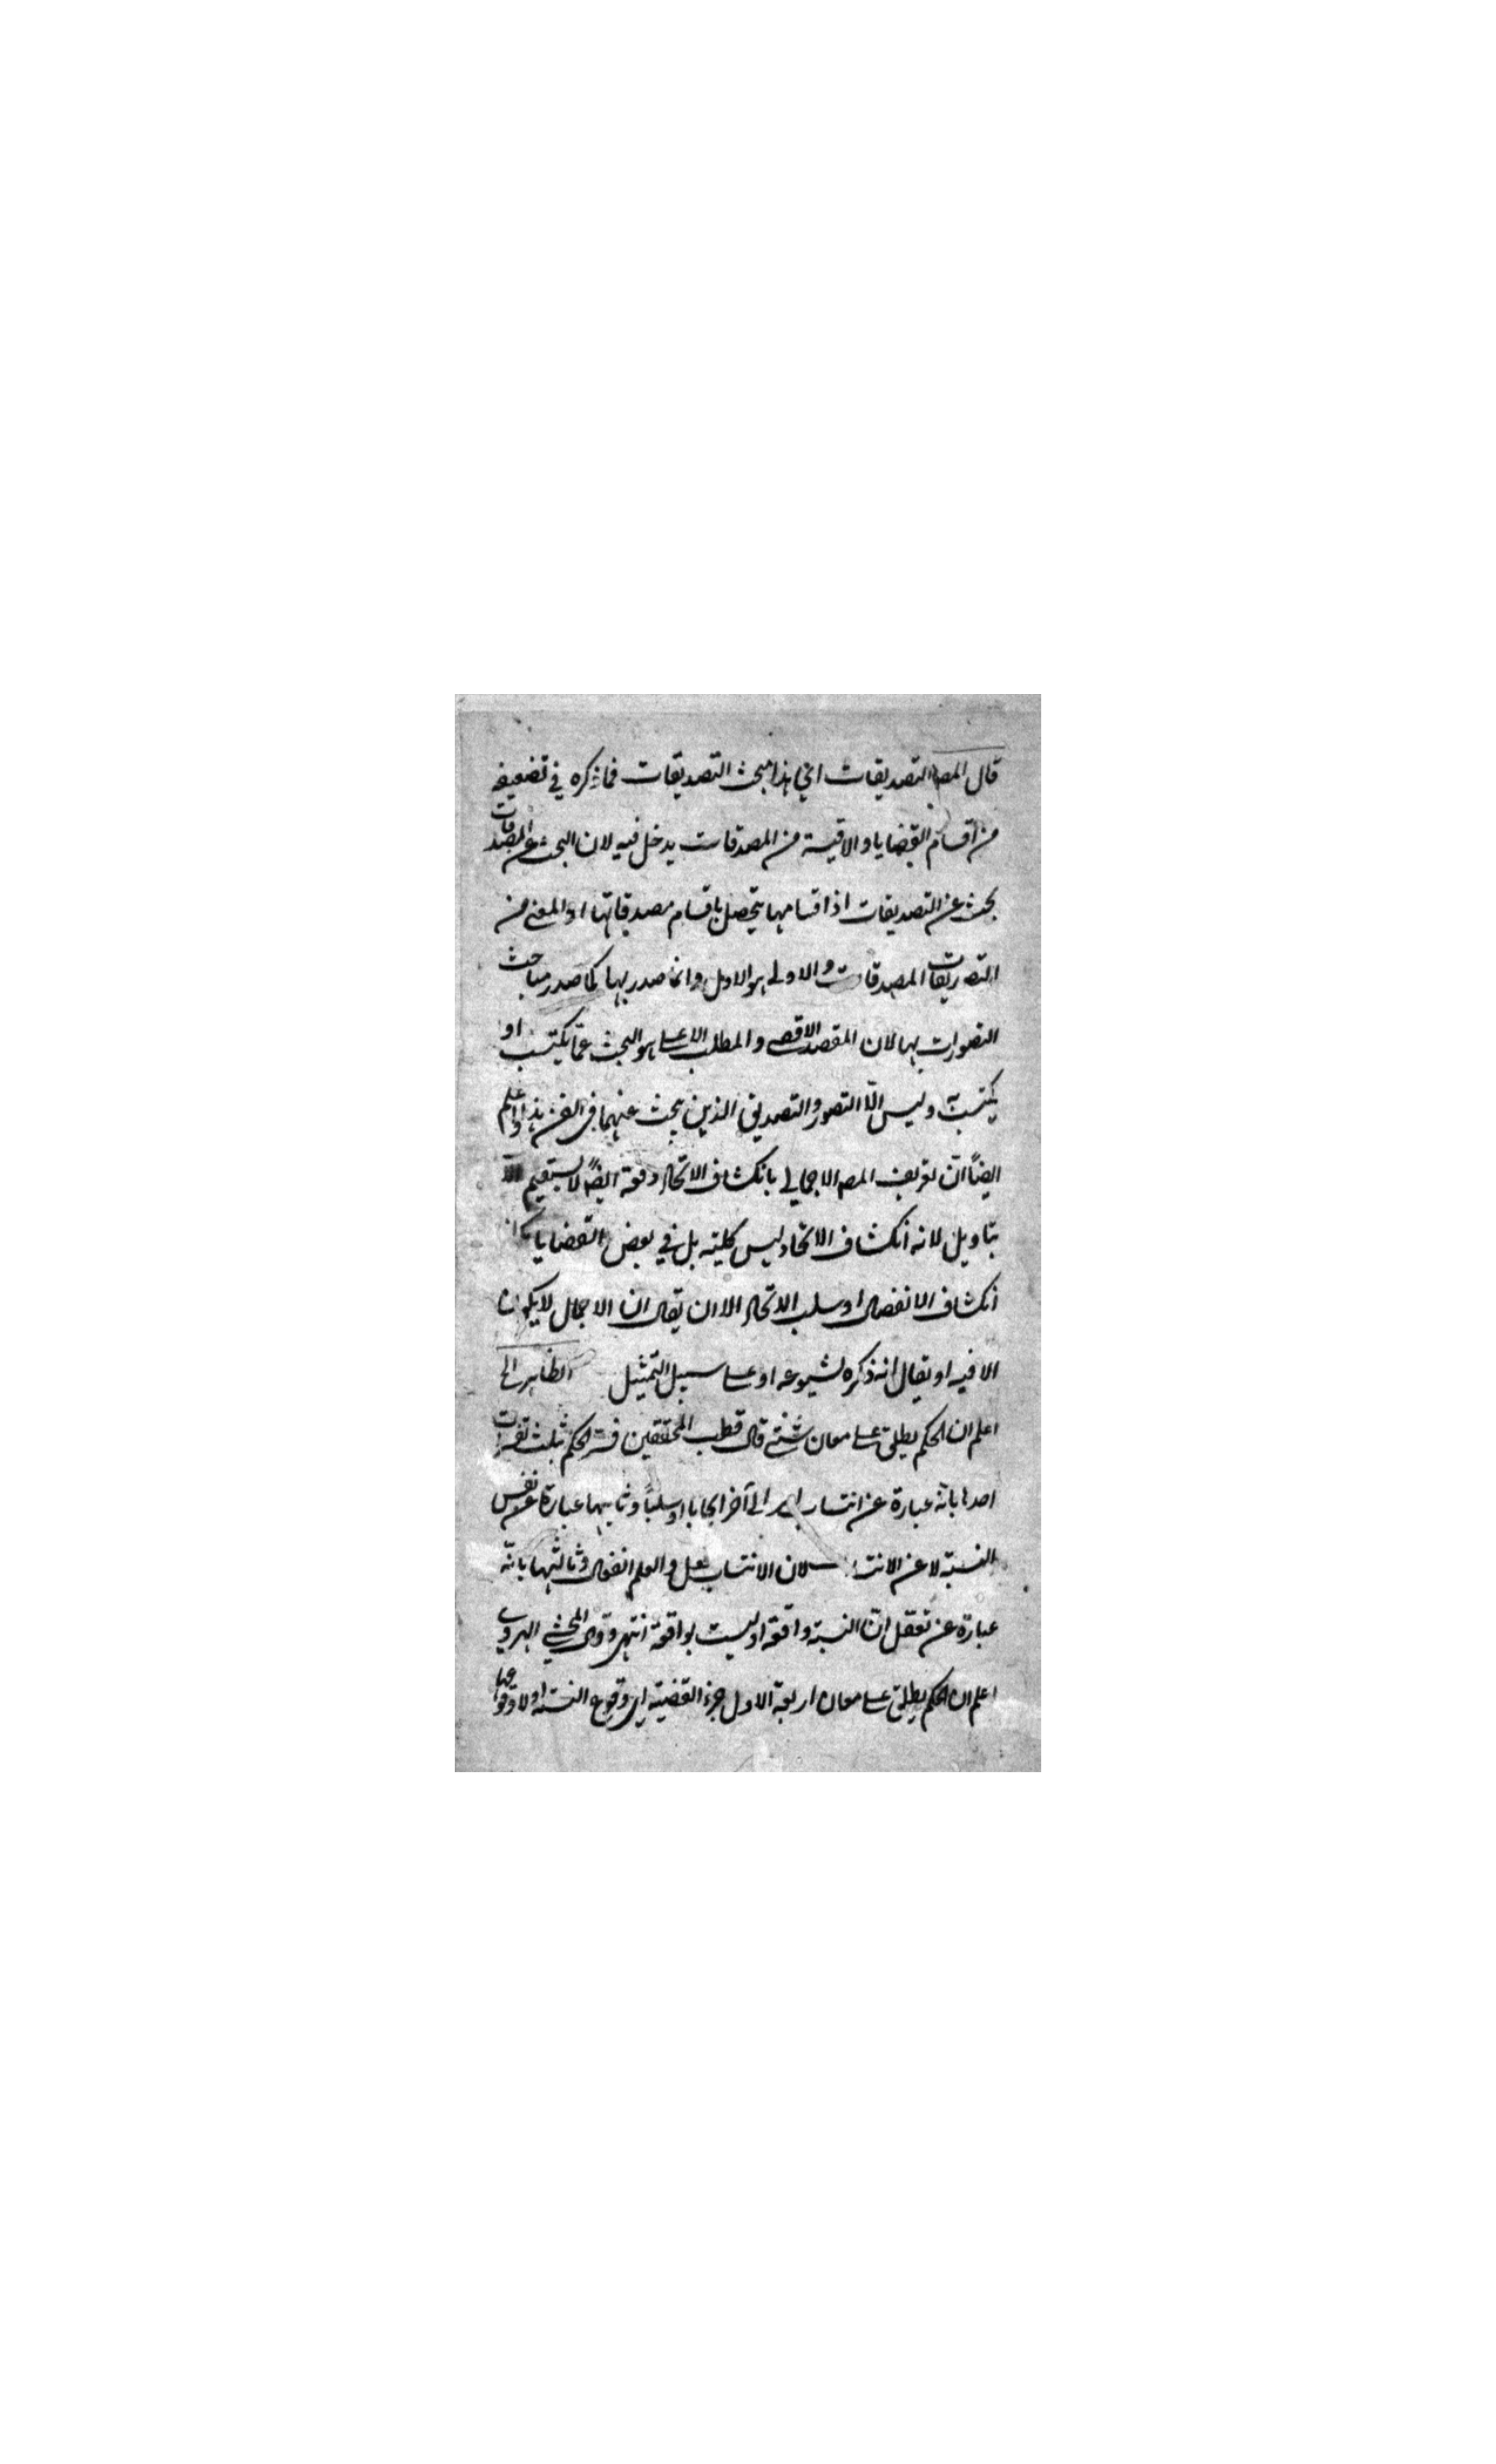 قال المصـ التصديقات اي هذا مبحث التصديقات فما ذكره في تضعيفه
من اقسام القضايا والاقيسة من المصدقات يدخل فيه لان البحث عن المصدقات
بحث عن التصديقات اذ اقسامها يتحصل باقسام مصدقاتها او المعنى من
التصديقات المصدقات والاولى هو الاول وانما صدر بها كما صدر مباحث
التصورات بها لان المقصد الاقصى والمطلب الاعلى هو البحث عما يكتسب او
يكتسب به وليس الّا التصور والتصديق الذين يبحث عنهما في الفن هذا واعلم
ايضًا انّ تعريف المصـ الاجمالي بانكشاف الاتحاد دفعة ايضًا لا يستقيم الّا
بتاويل لانه انكشاف الاتحاد ليس كليته بل في بعض القضايا
انكشاف الانفصال او سلب الاتحاد الا ان يقال ان الاجمال لا يكون
الا فيه او يقال انه ذكره لشيوعه او على سبيل التمثيل الظاهر الى
اعلم ان الحكم يطلق على معان شتى قال قطب المحققين فسّر الحكم بثلث
احدها بانّه عبارة عن انتساب امر الى آخر ايجابا او سلبًا وثانيها عبارة عن نفس
النسبة لا عن الانتساب لان الانتساب فعل والعلم انفعال وثالثها بانّه
عبارة عن تعقل انّ النسبة واقعة او ليست بواقعة انتهى وقال المحشي الهروي
اعلم ان الحكم يطلق على معان اربعة الاول جزء القضية اي وقوع النسبة او لا وقوعها